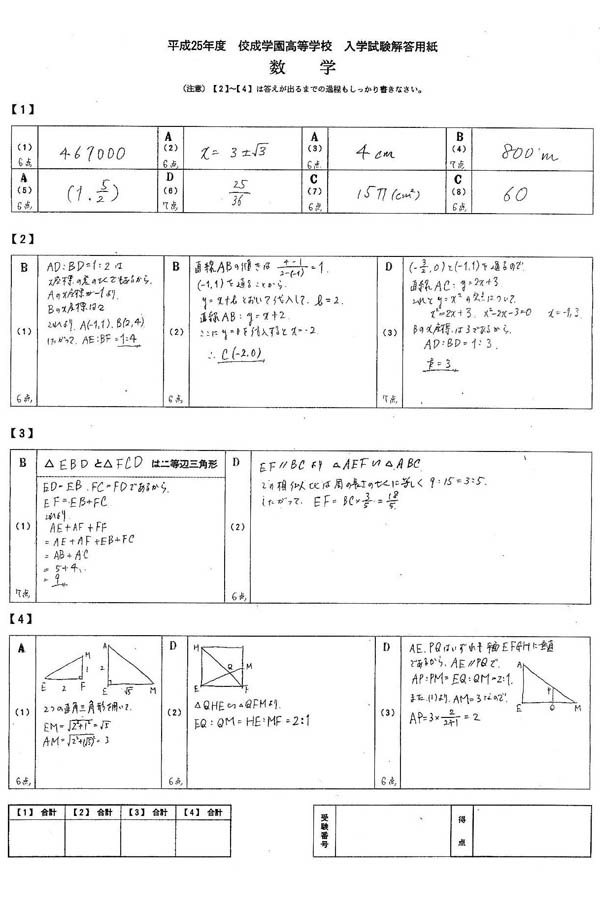 平成25年度 佼成学園高等学校 入学試験解答用紙
数 学
(注意)【2】~【4】は答えが出るまでの過程もしっかり書きなさい。
【1】
(1) 6点 467000
A (2) 6点 x = 3±√3
A (3) 6点 4 cm
B (4) 7点 800 m
A (5) 6点 (1, 5/2)
D (6) 7点 25/36
C (7) 6点 15π (cm²)
C (8) 6点 60
【2】
B (1) 6点
AD:BD=1:2は
x座標の差の比で
Aのx座標が-1より
Bのx座標は2
これより A(-1,1), B(2,4)
したがって, AE:BF=1:4
B (2) 6点
直線ABの傾きは 4-1/2-(-1) = 1.
(-1,1)を通ることから
y=x+bとおいて代入して, b=2.
直線AB: y=x+2
ここにy=0を代入するとx=-2.
∴ C(-2,0)
D (3) 7点
(-3/2,0)と(-1,1)を通るので,
直線AC: y=2x+3
これと y=x²の交点について,
x²=2x+3, x²-2x-3=0 x=-1,3
Bのx座標は3であるから,
AD:BD=1:3.
k=3
【3】
B (1) 7点
△EBDと△FCDは二等辺三角形
ED=EB, FC=FDであるから,
EF=EB+FC
これより
AE+AF+EF
=AE+AF+EB+FC
=AB+AC
=5+4
=9
D (2) 6点
EF//BCより △AEF∽△ABC
この相似比は周の長さの比に等しく 9:15=3:5.
したがって, EF=BC×3/5=18/5
【4】
A (1) 6点
M 1 E 2 F
A 2 E √5 M
2つの直角三角形を用いて,
EM=√2²+1²=√5
AM=√2²+(√5)²=3
D (2) 6点
H Q M E F
△QHE∽△QFMより
EQ:QM=HE:MF=2:1
D (3) 6点
AE, PQはいずれも平面EFGHに垂直
であるから, AE//PQで,
AP:PM=EQ:QM=2:1.
また(1)より, AM=3なので,
AP=3×2/2+1=2
A P E Q M
【1】合計 【2】合計 【3】合計 【4】合計
受験番号
得点